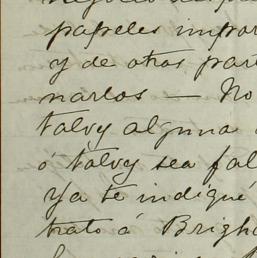 papeles impor
y de otros par
narlos — No
talvy alguna
ó talvy sea fal
ya te indiqué
trato á Brigh